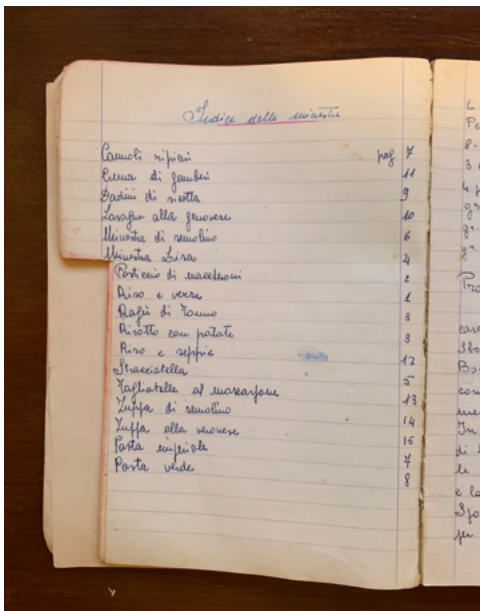 Indice delle minestre
Cannoli ripieni pag 7
Crema di gamberi 11
Dadini di ricotta 9
Lasagne alla genovese 10
Minestra di semolino 6
Minestra Lisa 4
Pasticcio di maccheroni 2
Riso e verze 1
Ragù di tonno 3
Risotto con patate 3
Riso e seppie 12
Stracciatella 5
Tagliatelle al mascarpone 13
Zuppa di semolino 14
Zuppa alla veronese 15
Pasta imperiale 7
Pasta verde 8